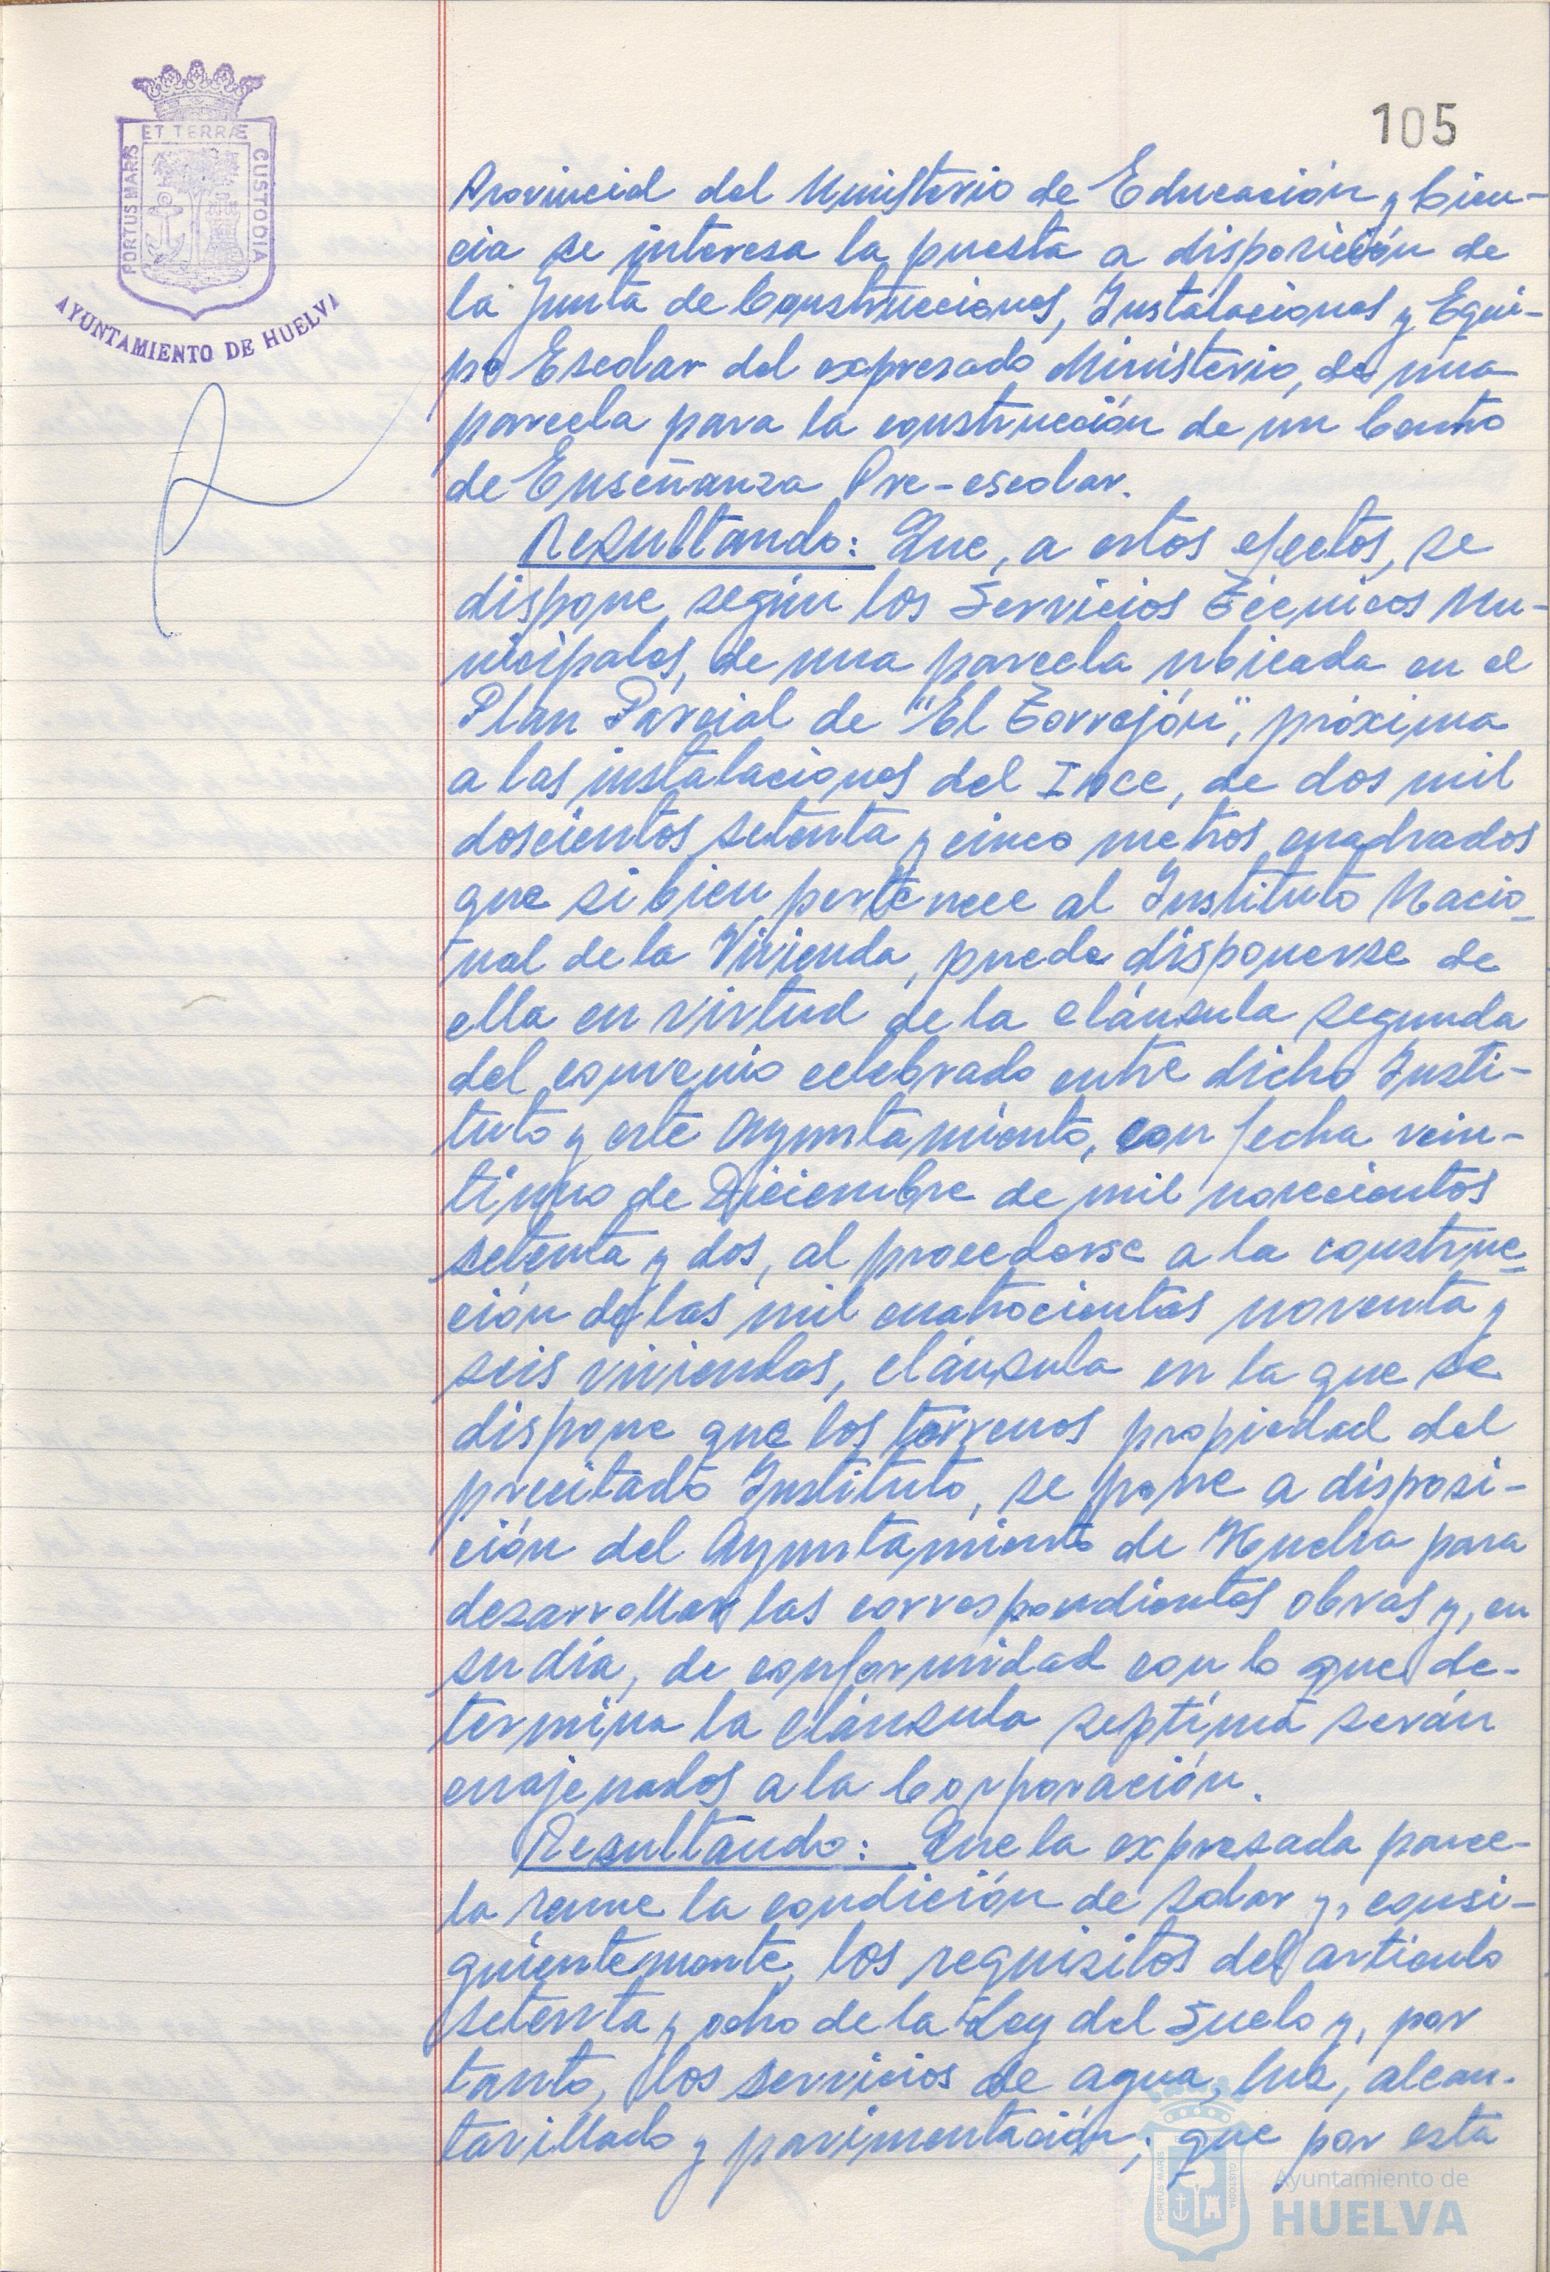 105
ET TERRÆ
PORTUS MARIS
CUSTODIA
AYUNTAMIENTO DE HUELVA
Provincial del Ministerio de Educación y Cien-
cia se interesa la puesta a disposición de
la Junta de Construcciones, Instalaciones y Equi-
po Escolar del expresado Ministerio, de una
parcela para la construcción de un Centro
de Enseñanza Pre-escolar.
Resultando: Que, a estos efectos, se
dispone, según los Servicios Técnicos Mu-
nicipales, de una parcela ubicada en el
Plan Parcial de "El Torrejón", próxima
a las instalaciones del Ince, de dos mil
doscientos setenta y cinco metros cuadrados
que si bien pertenece al Instituto Nacio-
nal de la Vivienda, puede disponerse de
ella en virtud de la cláusula segunda
del convenio celebrado entre dicho Insti-
tuto y este Ayuntamiento, con fecha vein-
tiuno de Diciembre de mil novecientos
setenta y dos, al procederse a la construc-
ción de las mil cuatrocientas noventa y
seis viviendas, cláusula en la que se
dispone que los terrenos propiedad del
precitado Instituto, se pone a disposi-
ción del Ayuntamiento de Huelva para
desarrollar las correspondientes obras y, en
su día, de conformidad con lo que de-
termina la cláusula septima serán
enajenados a la Corporación.
Resultando: Que la expresada parce-
la reune la condición de solar y, consi-
guientemente, los requisitos del artículo
setenta y ocho de la Ley del Suelo y, por
tanto, los servicios de agua, luz, alcan-
tarillado y pavimentación; que por esta
PORTUS MARIS
CUSTODIA
Ayuntamiento de
HUELVA